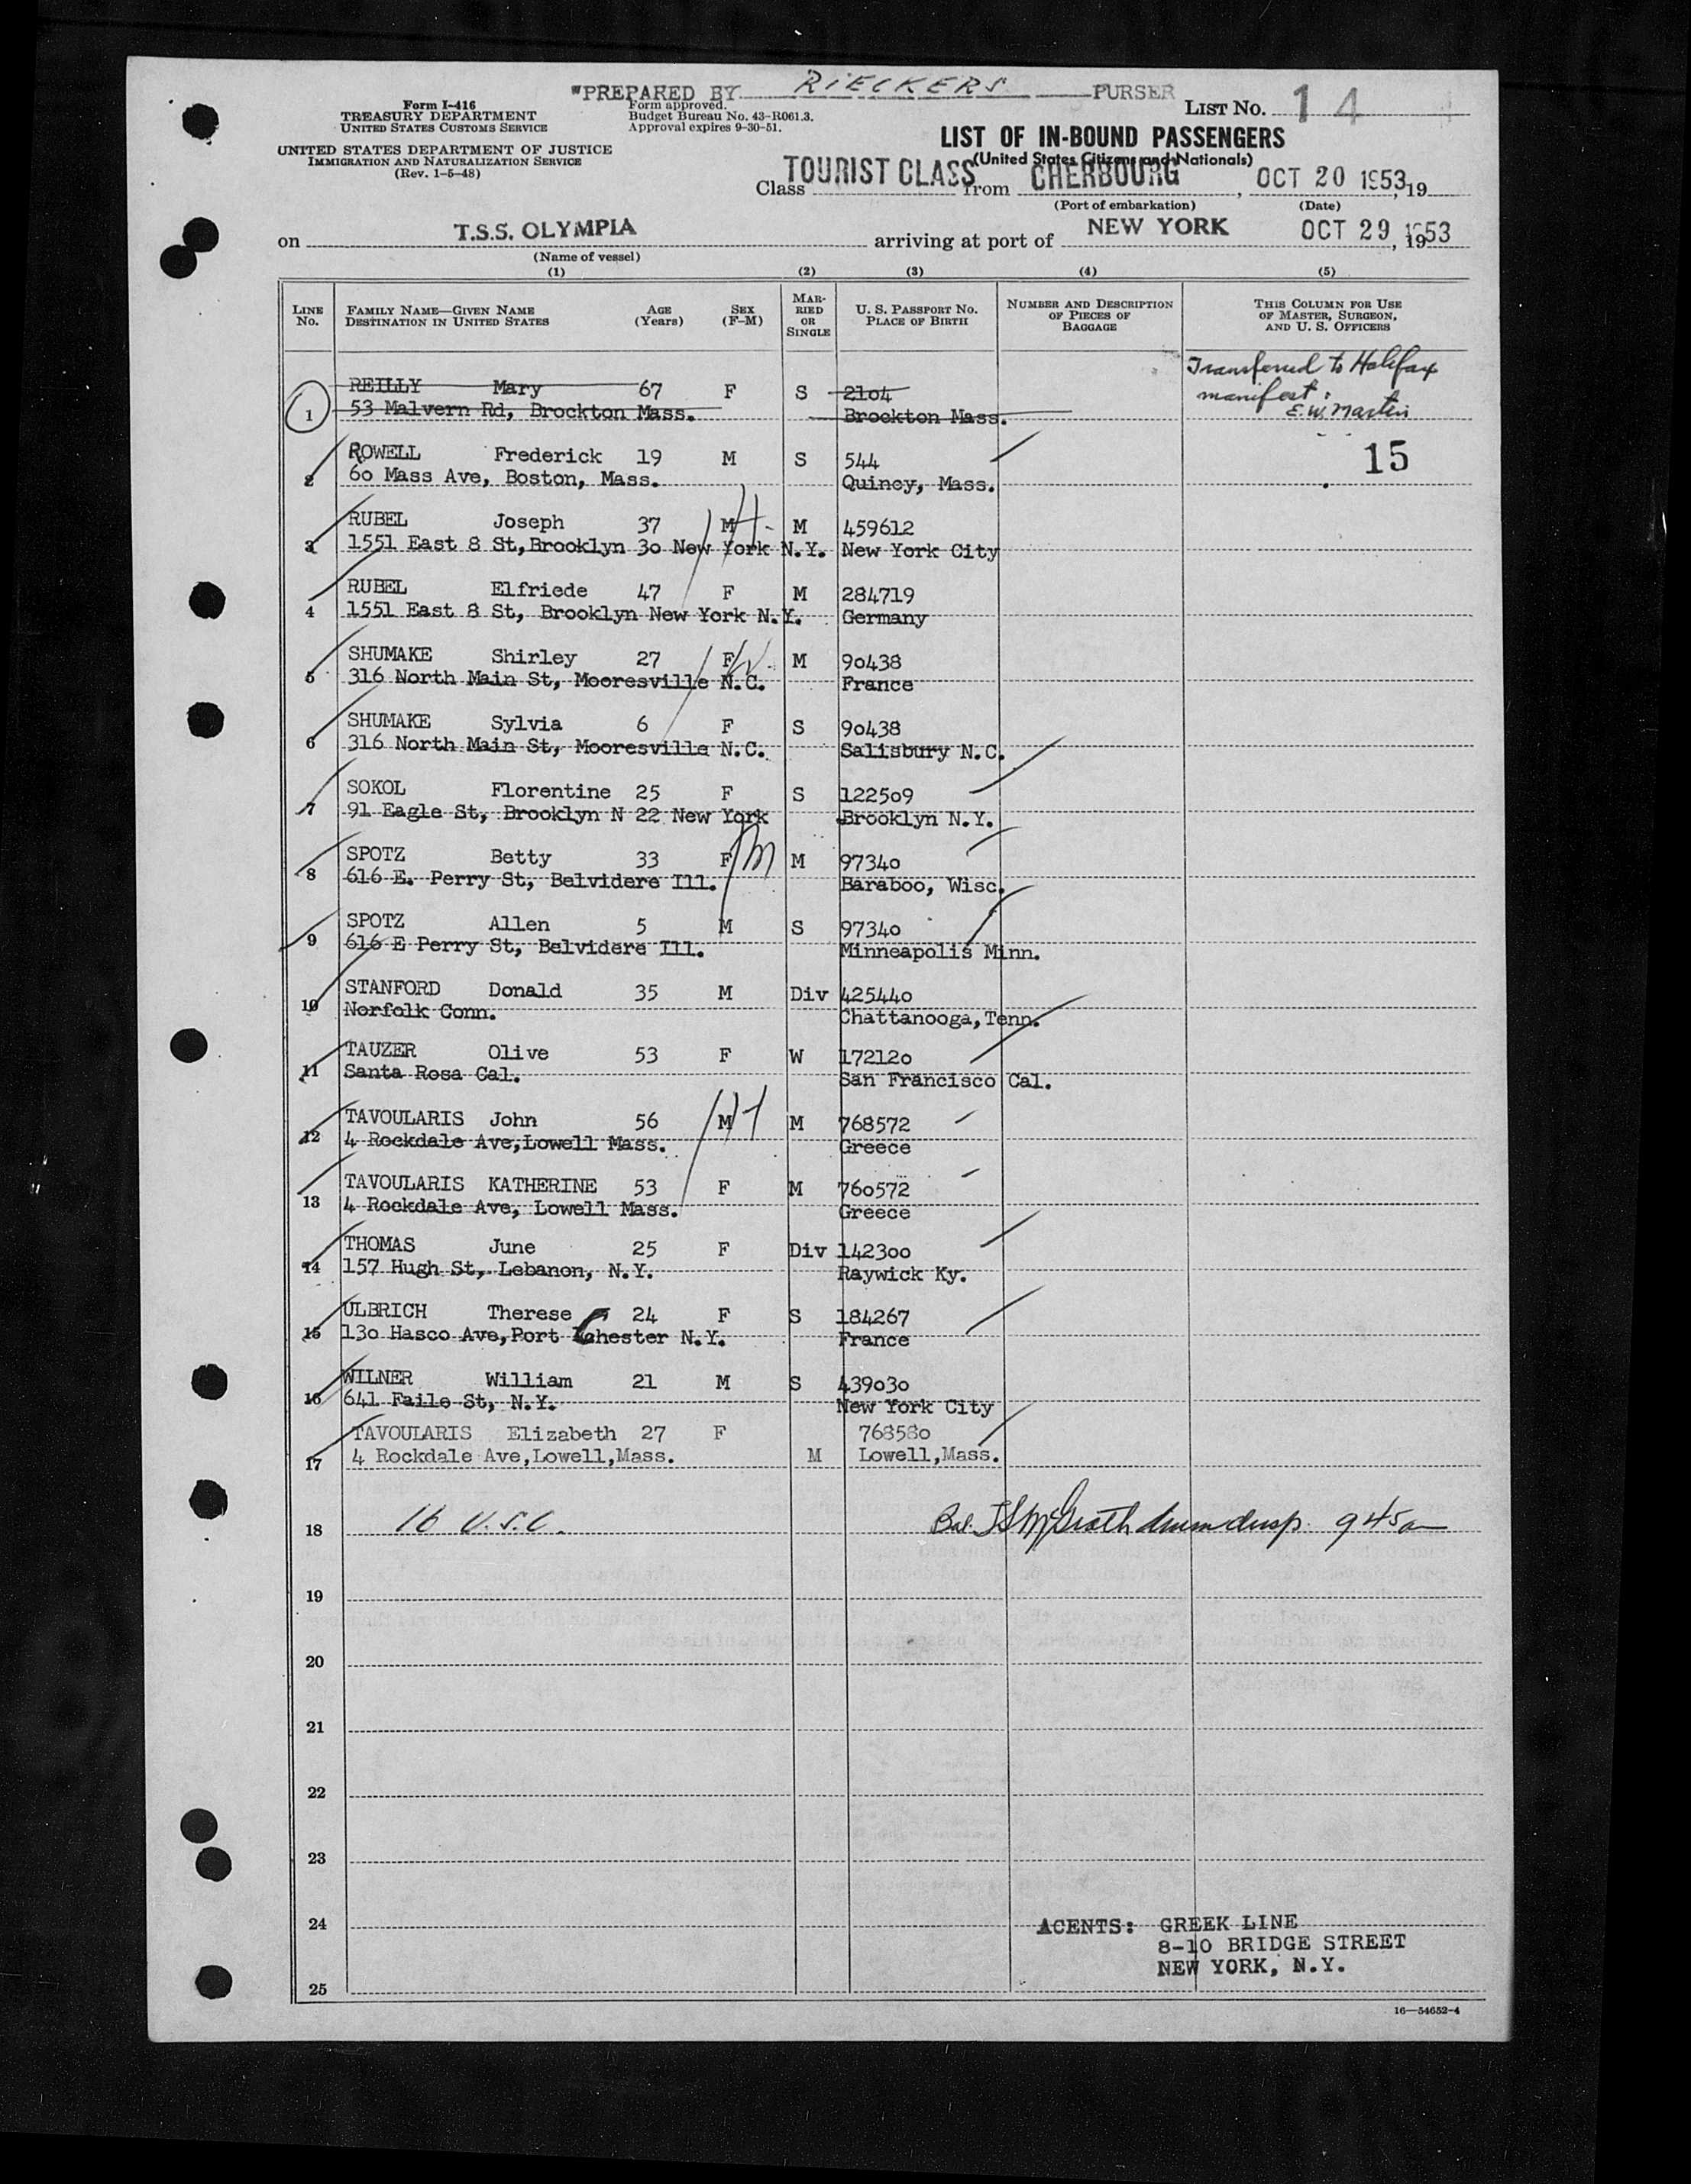 "PREPARED BY RIECKERS PURSER
Form I-416
TREASURY DEPARTMENT
UNITED STATES CUSTOMS SERVICE
Form approved.
Budget Bureau No. 43-R061.3.
Approval expires 9-30-51.
LIST NO. 14
UNITED STATES DEPARTMENT OF JUSTICE
IMMIGRATION AND NATURALIZATION SERVICE
(Rev. 1-5-48)
LIST OF IN-BOUND PASSENGERS
(United States Citizens and Nationals)
Class TOURIST CLASS from CHERBOURG, OCT 20 1953, 19
(Port of embarkation) (Date)
on T.S.S. OLYMPIA arriving at port of NEW YORK OCT 29, 1953
(Name of vessel)
(1) (2) (3) (4) (5)
LINE No. FAMILY NAME—GIVEN NAME DESTINATION IN UNITED STATES AGE (Years) SEX (F-M) MARRIED OR SINGLE U. S. PASSPORT NO. PLACE OF BIRTH NUMBER AND DESCRIPTION OF PIECES OF BAGGAGE THIS COLUMN FOR USE OF MASTER, SURGEON, AND U. S. OFFICERS
Transferred to Halifax
manifest.
E.W. Martin
REILLY Mary 67 F S 2104
1 53 Malvern Rd, Brockton Mass. Brockton Mass.
ROWELL Frederick 19 M S 544 15
2 60 Mass Ave, Boston, Mass. Quincy, Mass.
RUBEL Joseph 37 M M 459612
3 1551 East 8 St,Brooklyn 30 New York N.Y. New York City
RUBEL Elfriede 47 F M 284719
4 1551 East 8 St, Brooklyn New York N.Y. Germany
SHUMAKE Shirley 27 F M 90438
5 316 North Main St, Mooresville N.C. France
SHUMAKE Sylvia 6 F S 90438
6 316 North Main St, Mooresville N.C. Salisbury N.C.
SOKOL Florentine 25 F S 122509
7 91 Eagle St, Brooklyn N 22 New York Brooklyn N.Y.
SPOTZ Betty 33 F M 97340
8 616 E. Perry St, Belvidere Ill. Baraboo, Wisc.
SPOTZ Allen 5 M S 97340
9 616 E Perry St, Belvidere Ill. Minneapolis Minn.
STANFORD Donald 35 M Div 425440
10 Norfolk Conn. Chattanooga,Tenn.
TAUZER Olive 53 F W 172120
11 Santa Rosa Cal. San Francisco Cal.
TAVOULARIS John 56 M M 768572
12 4 Rockdale Ave,Lowell Mass. Greece
TAVOULARIS KATHERINE 53 F M 760572
13 4 Rockdale Ave, Lowell Mass. Greece
THOMAS June 25 F Div 142300
14 157 Hugh St, Lebanon, N.Y. Raywick Ky.
ULBRICH Therese 24 F S 184267
15 130 Hasco Ave,Port Chester N.Y. France
WILNER William 21 M S 439030
16 641 Faile St, N.Y. New York City
TAVOULARIS Elizabeth 27 F 768580
17 4 Rockdale Ave,Lowell,Mass. M Lowell,Mass.
18 16 U.S.C. McGrath 945a
19
20
21
22
23
24 AGENTS: GREEK LINE
8-10 BRIDGE STREET
NEW YORK, N.Y.
25
16—54652-4